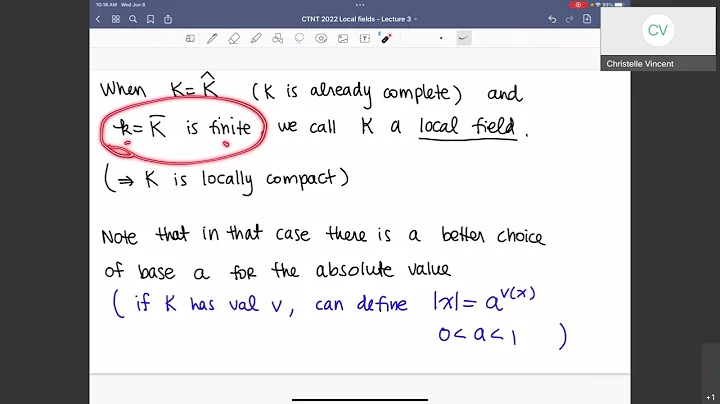 10:18 AM Wed Jun 8
CTNT 2022 Local fields - Lecture 3
93%
CV
Christelle Vincent
When K = K̂ (K is already complete) and
k = K̄ is finite, we call K a local field.
(⇒ K is locally compact)
Note that in that case there is a better choice
of base a for the absolute value
(if K has val v, can define |x| = a^{v(x)}
0 < a < 1 )
+1